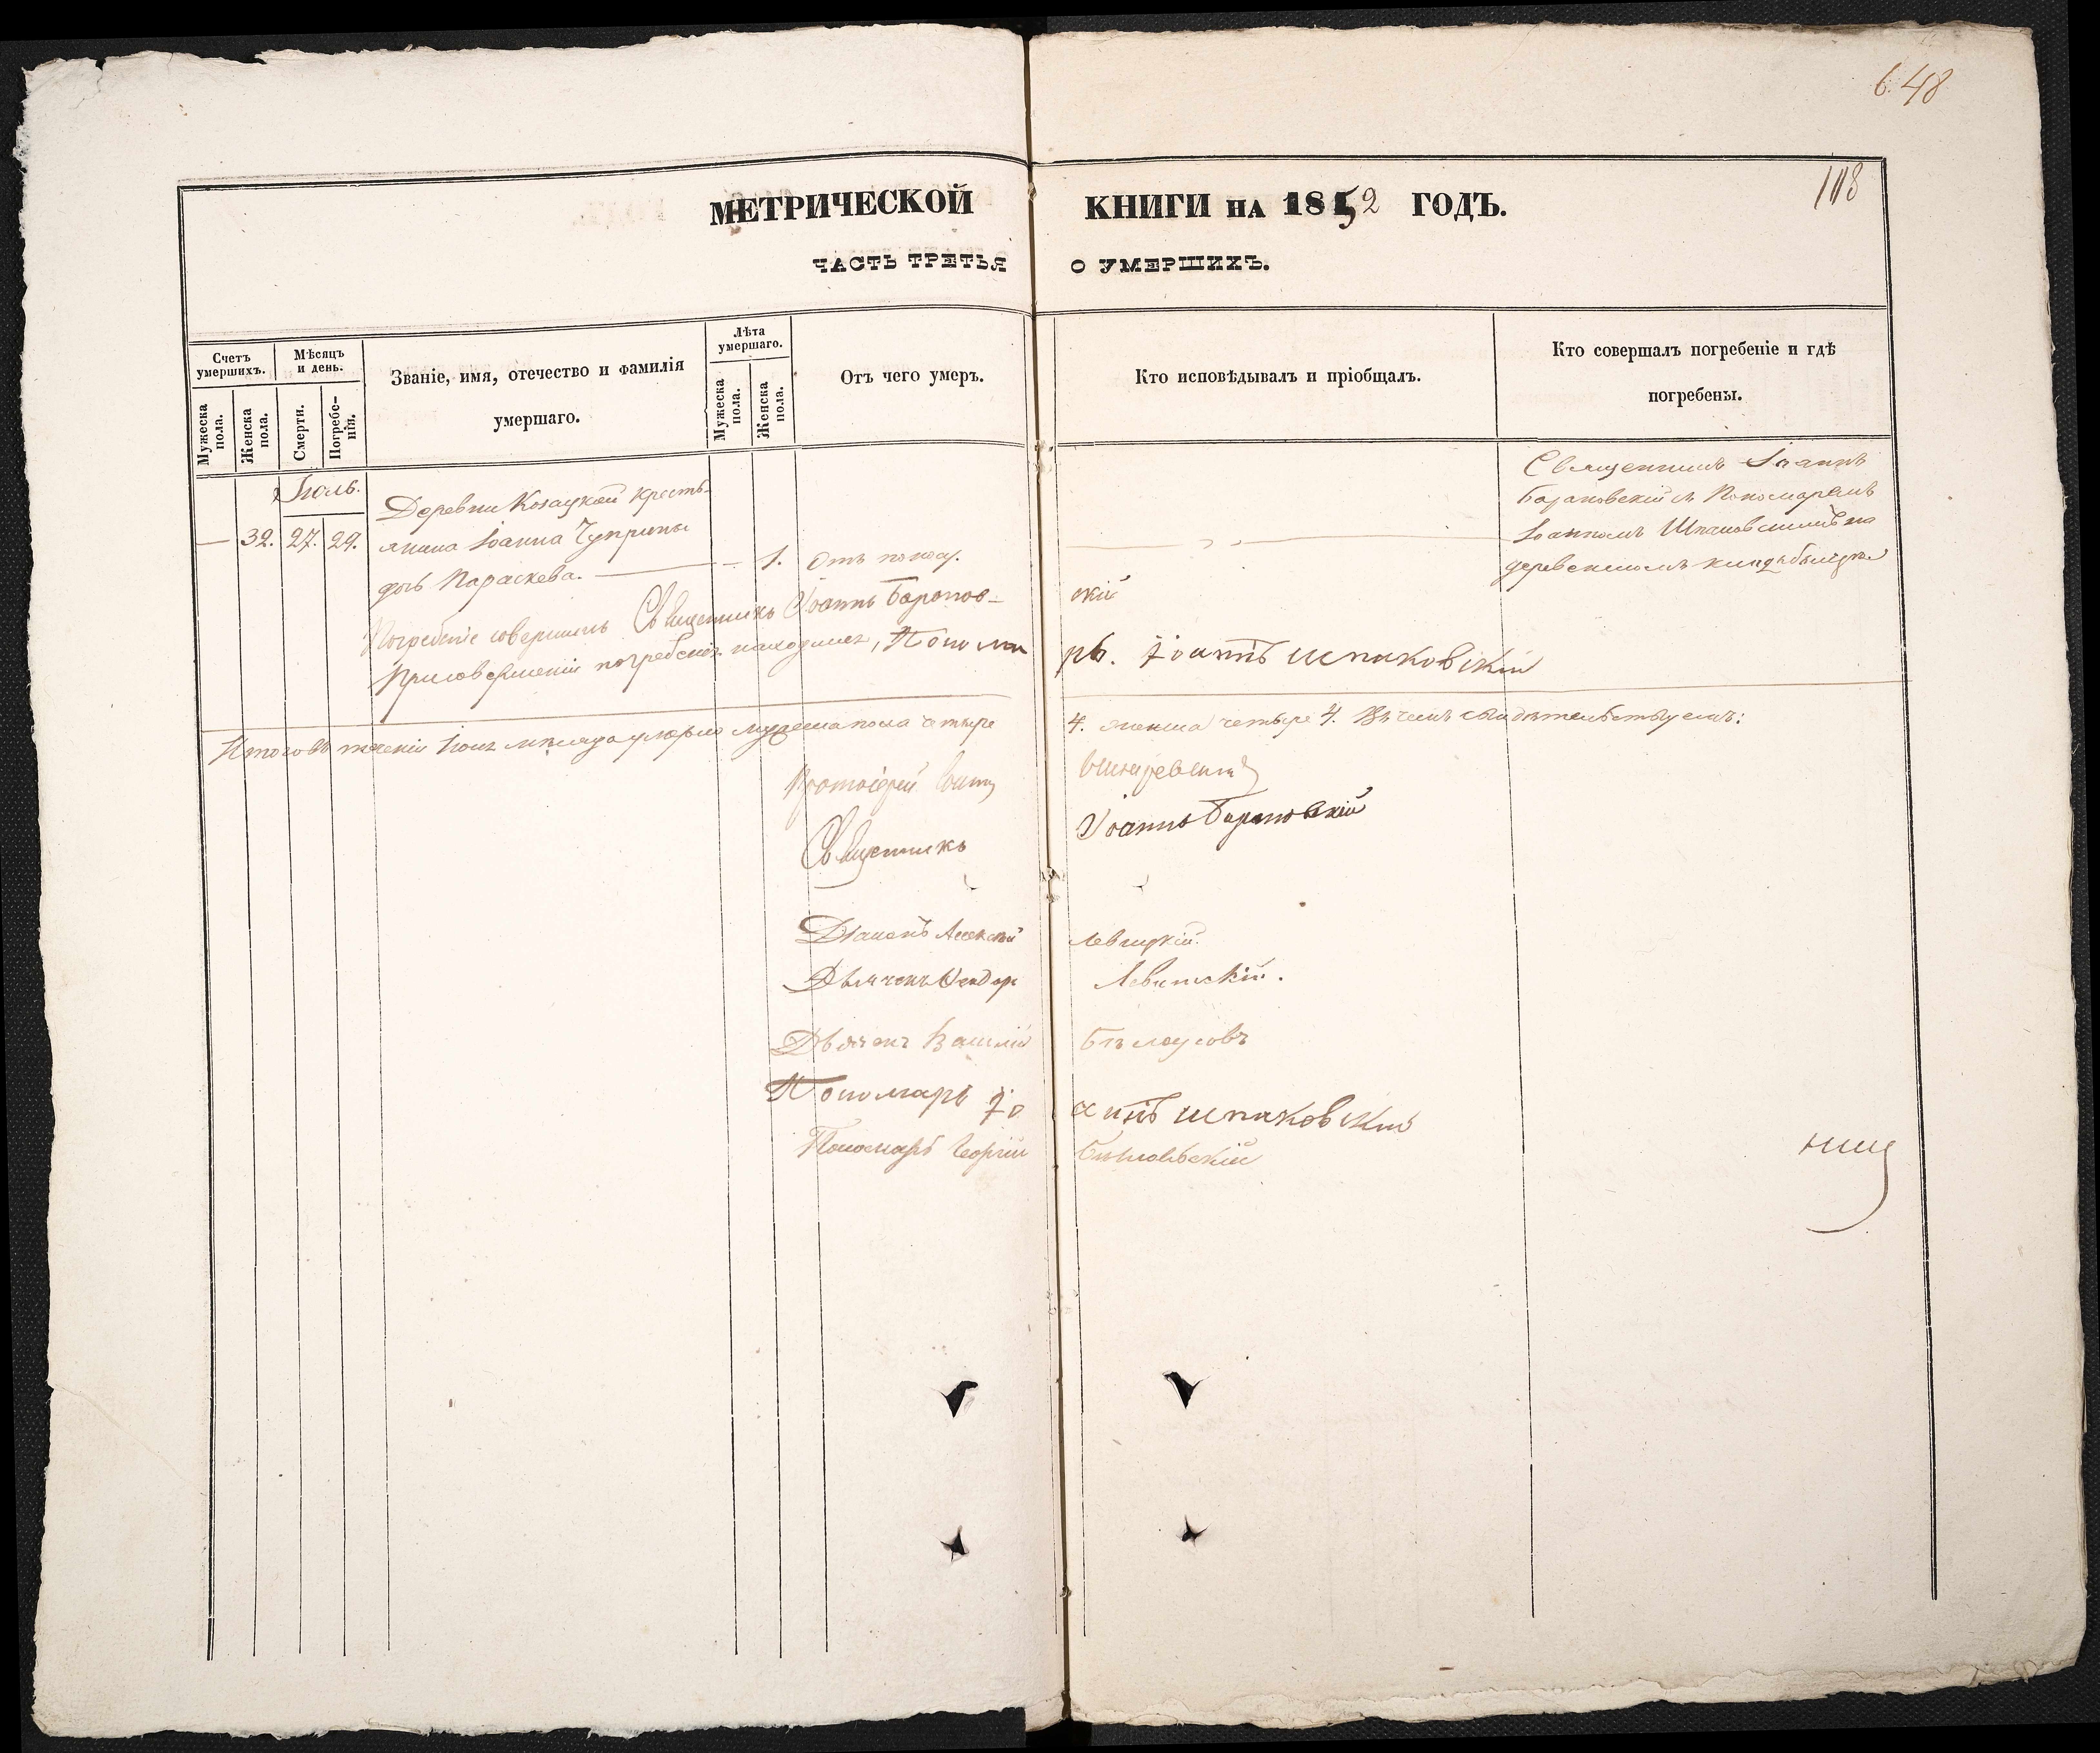 6. 48
118
МЕТРИЧЕСКОЙ КНИГИ НА 1852 ГОДЪ.
ЧАСТЬ ТРЕТЬЯ О УМЕРШИХЪ.
Счетъ умершихъ.
Мужеска пола.
Женска пола.
Мѣсяцъ и день.
Смерти.
Погребенія.
Званіе, имя, отечество и фамилія
умершаго.
Лѣта умершаго.
Мужеска пола.
Женска пола.
Отъ чего умеръ.
Кто исповѣдывалъ и пріобщалъ.
Кто совершалъ погребеніе и гдѣ
погребены.
Іюль.
— 32. 27. 29.
Деревни Козацкой кресть-
янина Іоанна Чуприны
дочь Параскева. — 1. Отъ поносу.
Священникъ Іоаннъ
Барановскій съ Пономаремъ
Іоанномъ Шпаковскимъ на
деревенскомъ кладбищѣ
Погребеніе совершилъ Священникъ Іоаннъ Баранов-скій
При совершеніи погребенія находился, Пономарь. Іоаннъ Шпаковскій
Итого въ теченіи Іюля мѣсяца умерло мужеска пола четыре 4. женска четыре 4. Въ чемъ свидѣтельствуемъ:
Протоіерей
Священникъ Іоаннъ Барановскій
Діаконъ Алексѣй Левицкій.
Дьячокъ Ѳеодоръ Левитскій.
Дьячокъ Василій Бѣлоусовъ
Пономарь Іоаннъ Шпаковскій
Пономарь Георгій